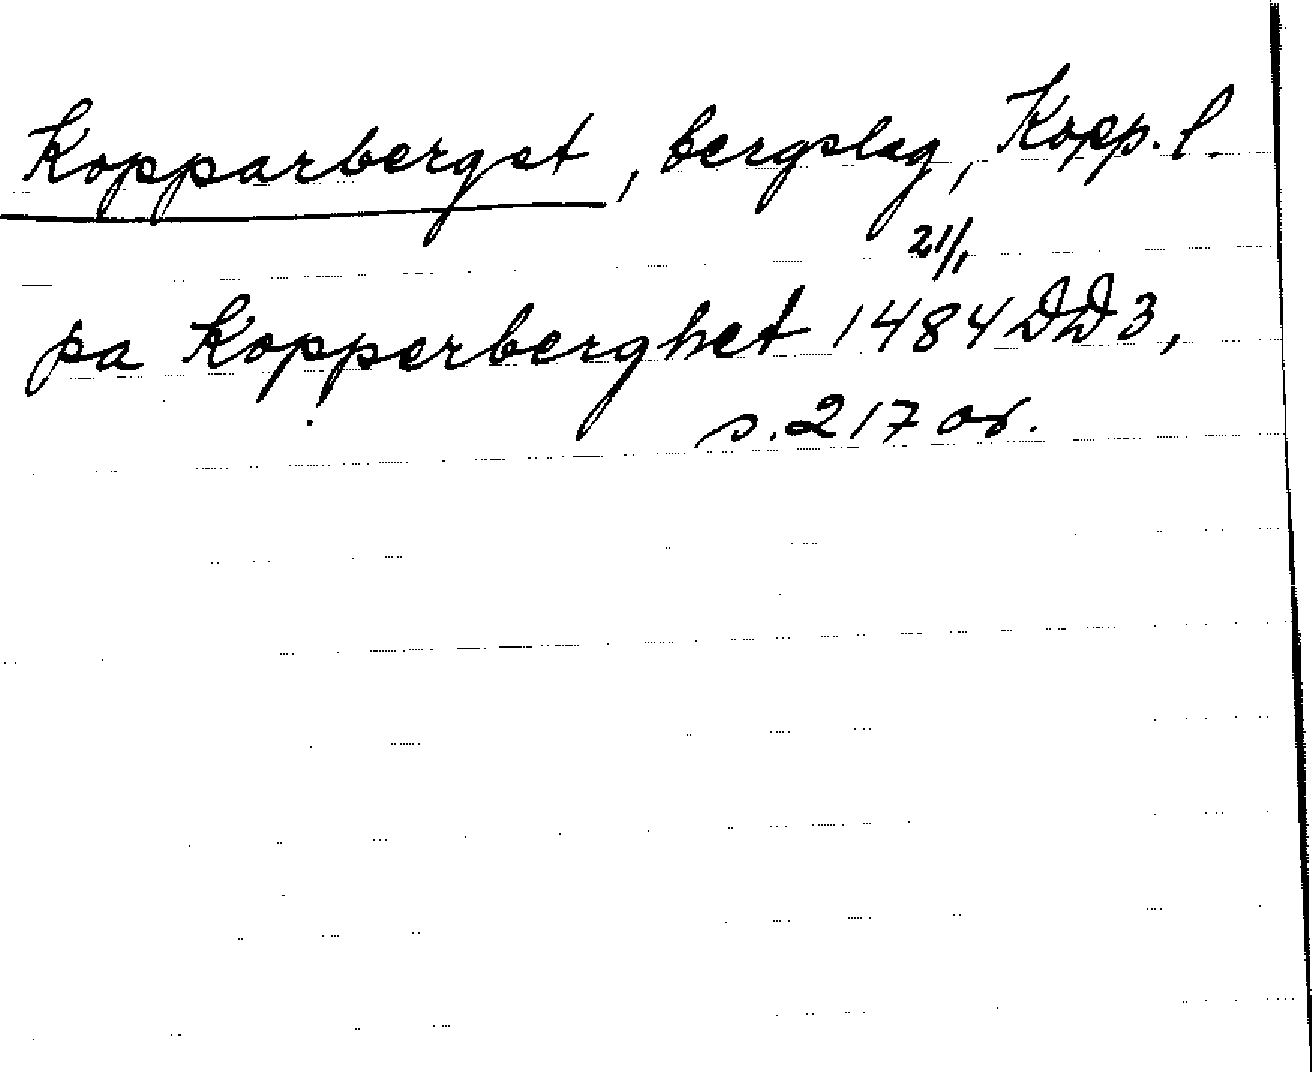 Kopparberget, bergslag, Kopp. l.
21/1
pa Kopperberghet 1484 DD 3,
s. 217 or.